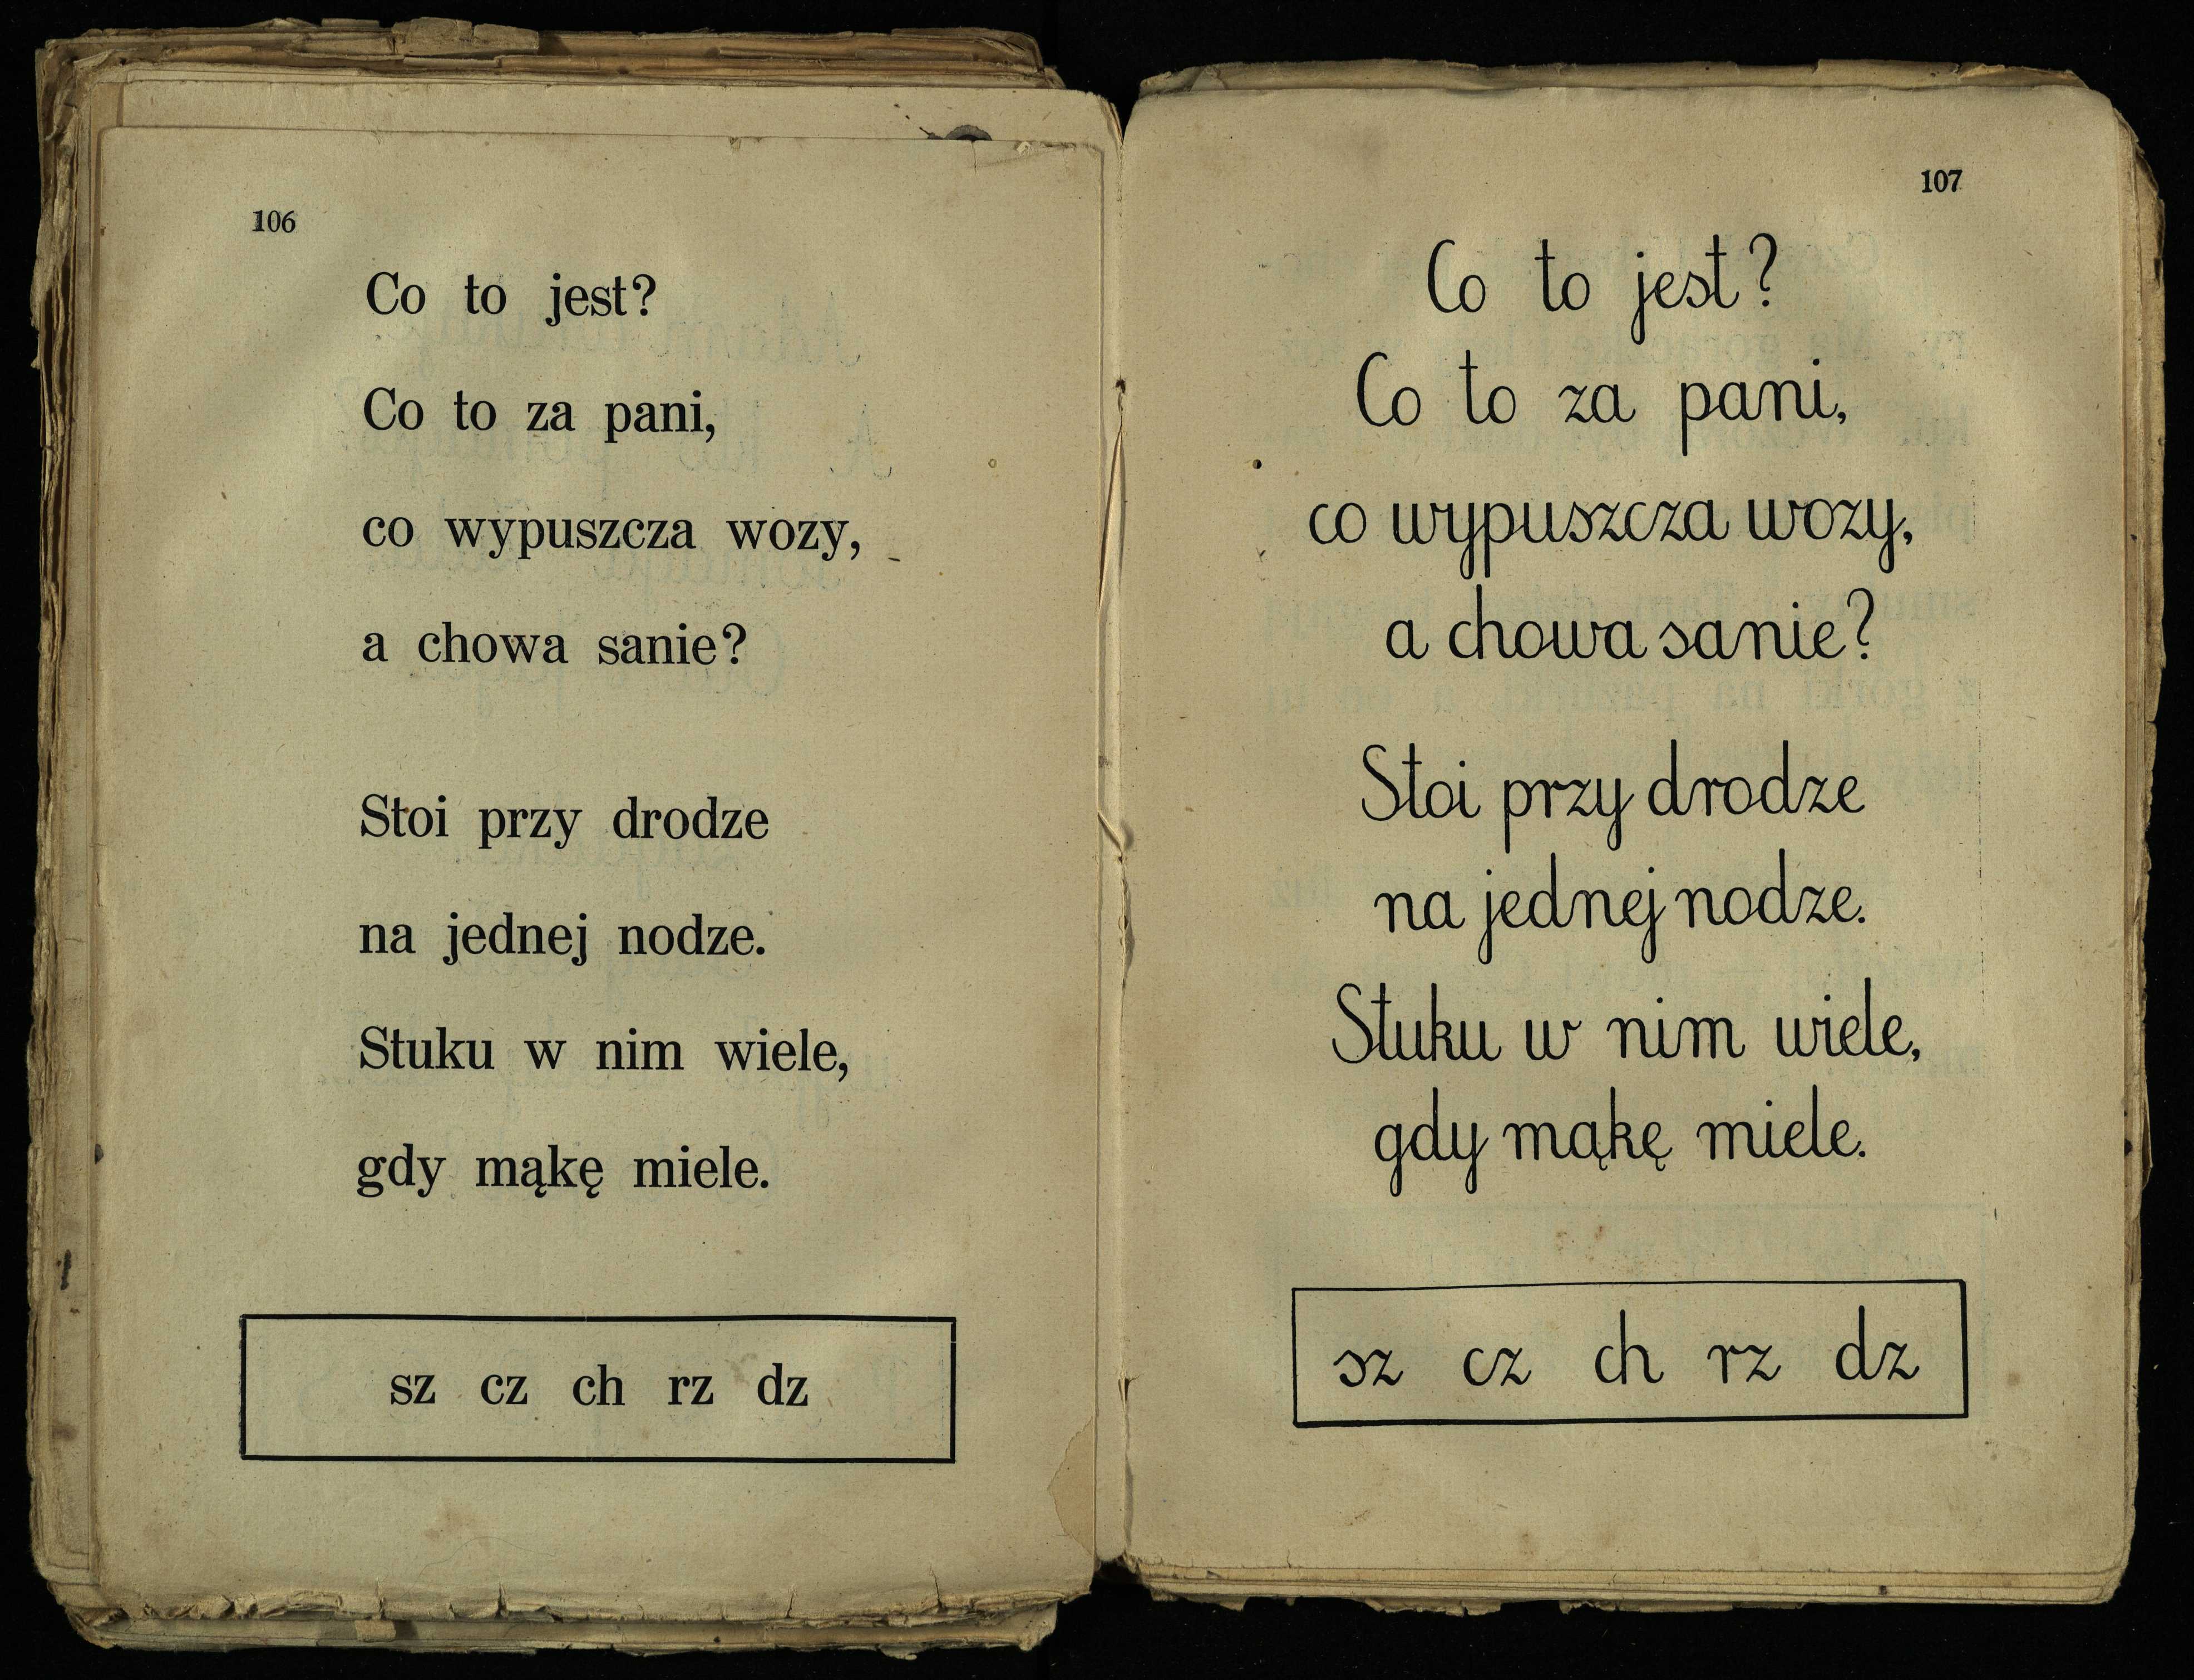 106
Co to jest?
Co to za pani,
co wypuszcza wozy,
a chowa sanie?
Stoi przy drodze
na jednej nodze.
Stuku w nim wiele,
gdy mąkę miele.
sz cz ch rz dz
107
Co to jest?
Co to za pani,
co wypuszcza wozy,
a chowa sanie?
Stoi przy drodze
na jednej nodze.
Stuku w nim wiele,
gdy mąkę miele.
sz cz ch rz dz